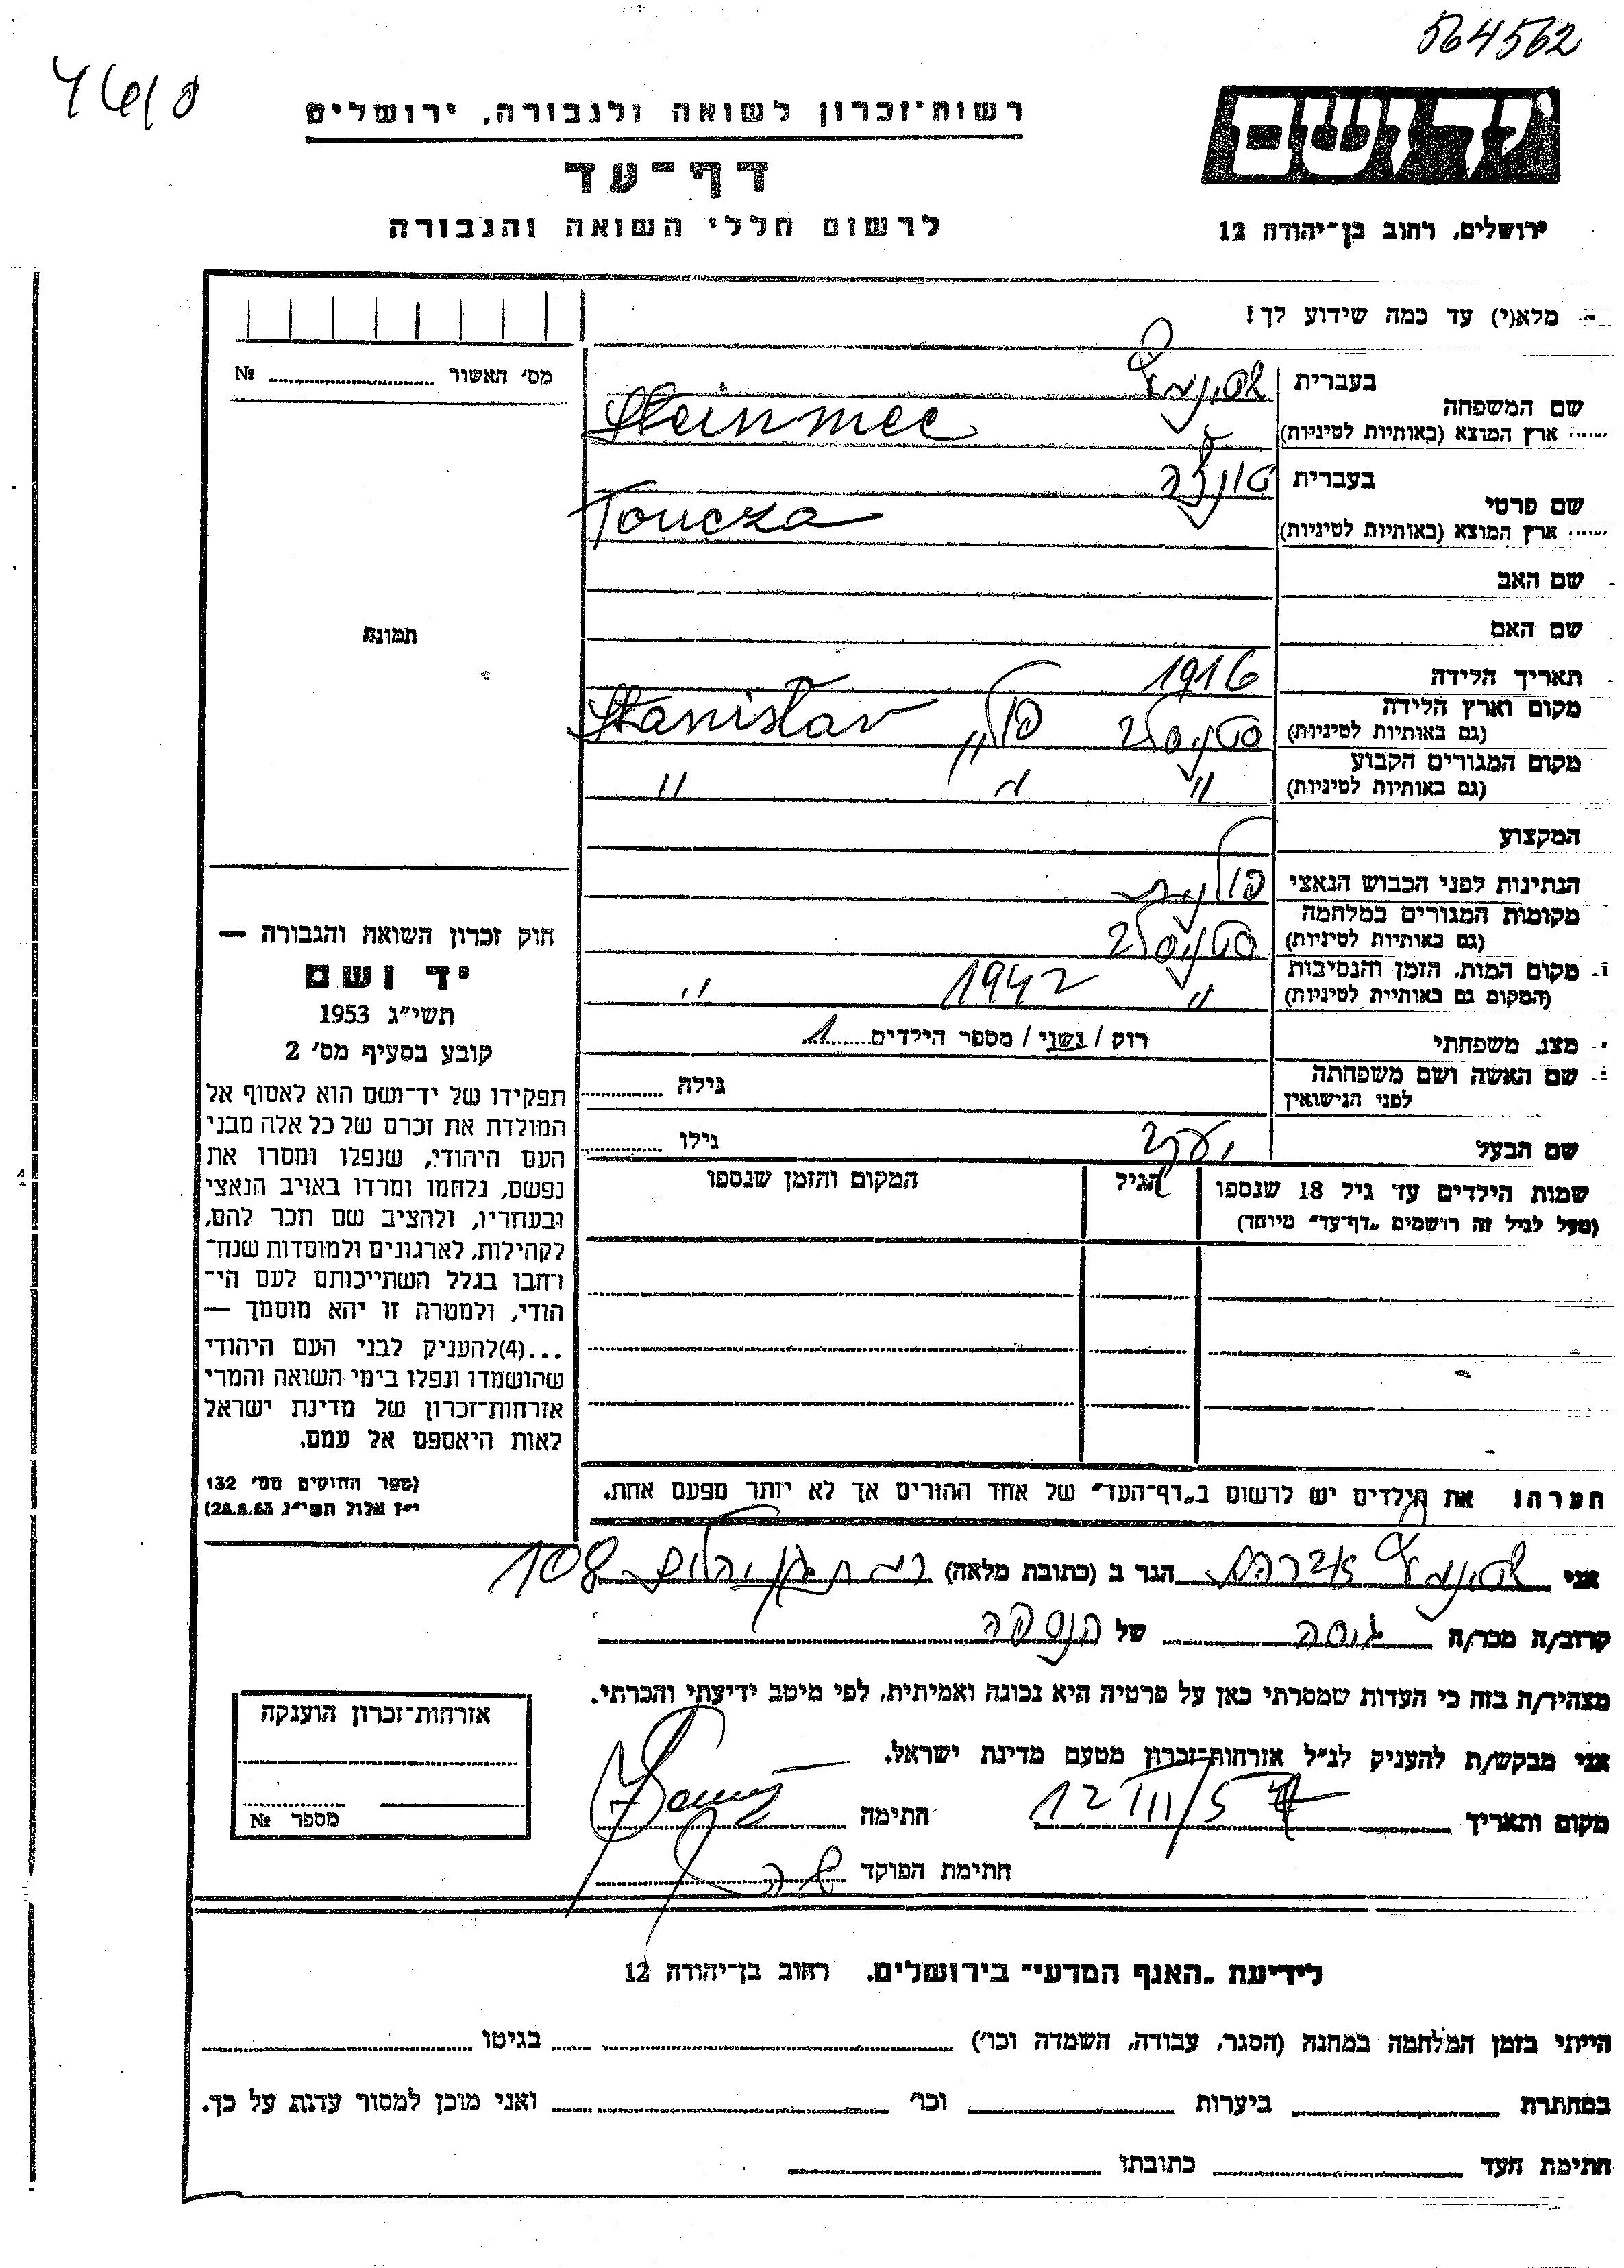 564562
4610
יד ושם
רשות־זכרון לשואה ולגבורה, ירושלים
דף־עד
לרשום חללי השואה והגבורה
ירושלים, רחוב בן־יהודה 12
מלא(י) עד כמה שידוע לך!
מס׳ האשור № 
שם המשפחה
בעברית שטיינמץ
ארץ המוצא (באותיות לטיניות) Steinmec
שם פרטי
בעברית טונצ'ה
ארץ המוצא (באותיות לטיניות) Toncza
שם האב
שם האם
תמונה
תאריך הלידה 1916
מקום וארץ הלידה
(גם באותיות לטיניות) סטניסלב פולין Stanislav
מקום המגורים הקבוע
(גם באותיות לטיניות) " " "
המקצוע
הנתינות לפני הכבוש הנאצי פולנית
מקומות המגורים במלחמה
(גם באותיות לטיניות) סטניסלב
מקום המות, הזמן והנסיבות
(המקום גם באותיות לטיניות) " 1942 "
מצב משפחתי רוק / נשוי / מספר הילדים 1
שם האשה ושם משפחתה
לפני הנישואין גילה
שם הבעל יעקב גילו
שמות הילדים עד גיל 18 שנספו
(מעל לגיל זה רושמים „דף־עד" מיוחד)
הגיל
המקום והזמן שנספו
חוק זכרון השואה והגבורה —
יד ושם
תשי״ג 1953
קובע בסעיף מס׳ 2
תפקידו של יד־ושם הוא לאסוף אל
המולדת את זכרם של כל אלה מבני
העם היהודי, שנפלו ומסרו את
נפשם, נלחמו ומרדו באויב הנאצי
ובעוזריו, ולהציב שם וזכר להם,
לקהילות, לארגונים ולמוסדות שנח־
רבו בגלל השתייכותם לעם הי־
הודי, ולמטרה זו יהא מוסמך —
...(4)להעניק לבני העם היהודי
שהושמדו ונפלו בימי השואה והמרי
אזרחות־זכרון של מדינת ישראל
לאות היאספם אל עמם.
(ספר החוקים מס׳ 132
י״ז אלול תשי״ג 28.8.53)
הערה! את הילדים יש לרשום ב„דף־העד" של אחד ההורים אך לא יותר מפעם אחת.
אני שטיינמץ אברהם הגר ב (כתובת מלאה) רמת גן יהלום 108
קרוב/ה מכר/ה גיסה של הנספה
מצהיר/ה בזה כי העדות שמסרתי כאן על פרטיה היא נכונה ואמיתית, לפי מיטב ידיעתי והכרתי.
אני מבקש/ת להעניק לנ״ל אזרחות־זכרון מטעם מדינת ישראל.
מקום ותאריך 12/III/57 חתימה
חתימת הפוקד
אזרחות־זכרון הוענקה
מספר №
לידיעת „האגף המדעי" בירושלים. רחוב בן־יהודה 12
הייתי בזמן המלחמה במחנה (הסגר, עבודה, השמדה וכו׳) בגיטו
במחתרת ביערות וכו׳ ואני מוכן למסור עדות על כך.
חתימת העד כתובתו